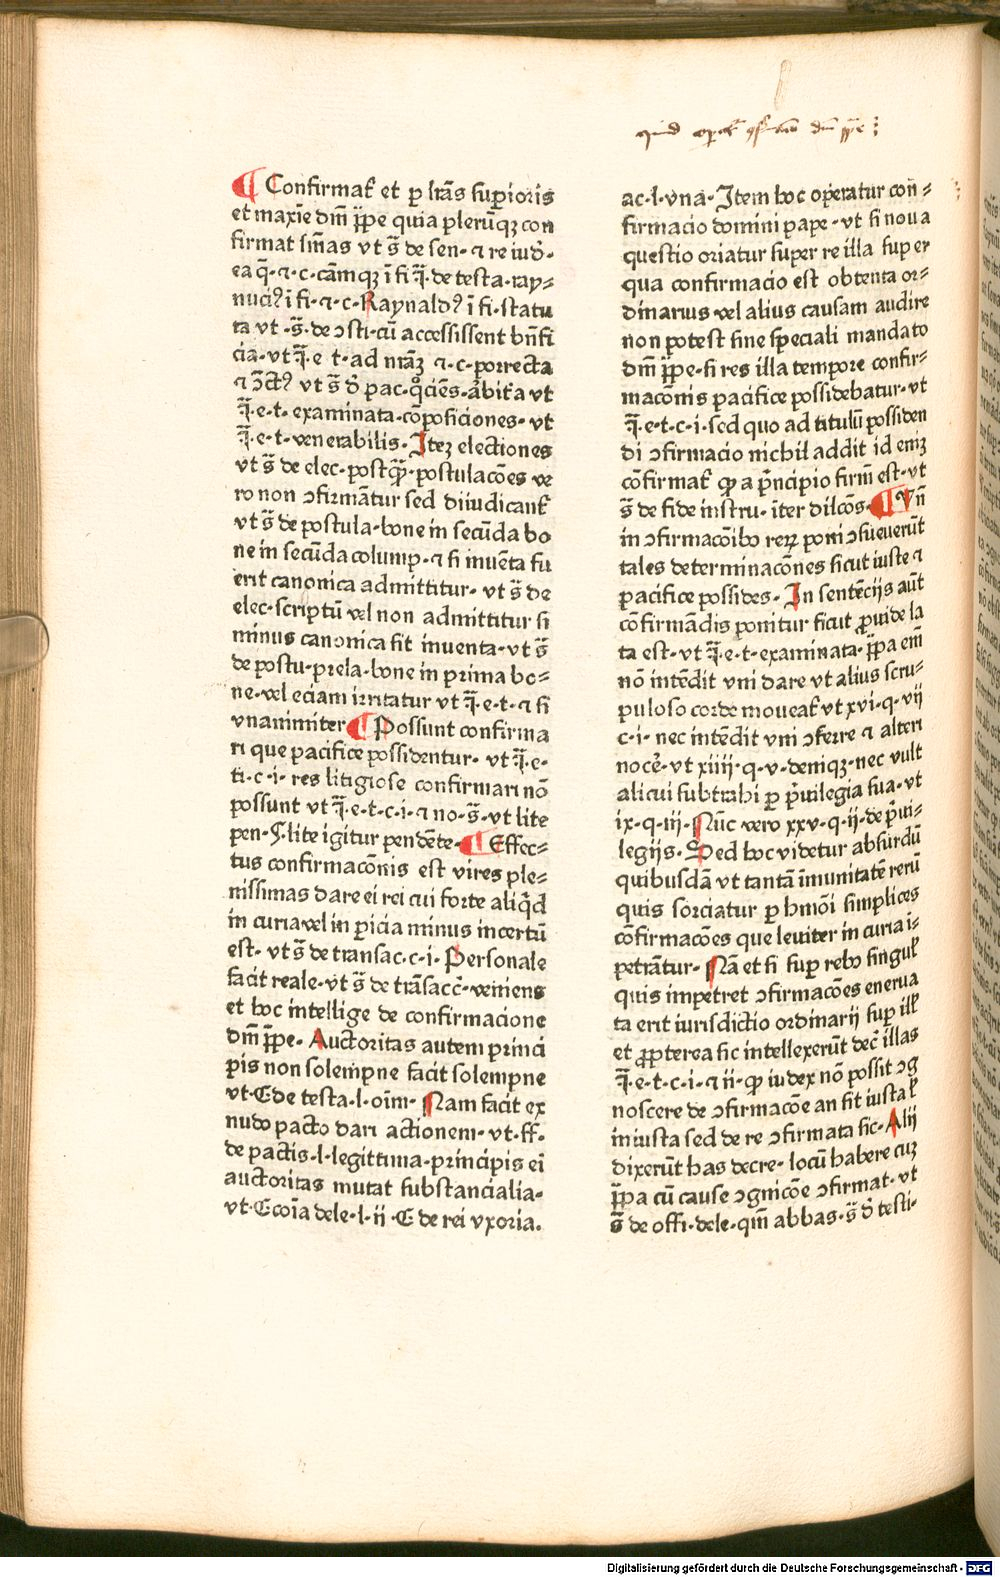 ¶ Confirmat᷑ et p lr̄as suꝑioris
et maxīe dm̄ pp̄e quia plerūqꝫ con
firmat sn̄ias vt s̄ de sen· ⁊ re iud̄·
ea q̄·⁊·c·cāmqꝫ ī fi q̄·de testa·ray⸗
nuciꝰ ī fi·⁊·c·Raynaldꝰ ī fi·statu
ta vt ·s̄·de ↄsti·cū accessissent bn̄fi
cia·vt q̄·e t·ad nr̄aꝫ ⁊·c·porrecta
⁊ ↄ̄ctꝰ vt s̄ d̄ pac·
q̄·e·t·examinata·cōposiciones·vt
q̄·e·t·venerabilis·Iteꝫ electiones
vt s̄ de elec·postq̄ꝫ·postulacōes ve
ro non ↄfirmāntur sed diiudicant᷑
vt s̄ de postula·bone in secūda bo
ne in secūda colump·⁊ si inuēta fu
erit canonica admittitur·vt s̄ de
elec·scriptū vel non admittitur si
minus canonica sit inuenta·vt s̄
de postu·prela·bone in prima bo⸗
ne·vel eciam irritatur vt q̄·e·t·⁊ si
vnanimiter ¶ Possunt confirma
ri que pacifice possidentur·vt q̄·e·
ti·c·i·res litigiose confirmari nō
possunt vt q̄·e·t·c·i·⁊ no·s̄·vt lite
pen·§·lite igitur pendēte· ¶ Effec⸗
tus confirmacōnis est vires ple⸗
nissimas dare ei rei cui forte aliq̄d
in curia vel in ꝑicia minus incertū
est·vt s̄ de transac·c·i·Personale
facit reale·vt s̄ de trāsacc̄·veniens
et hoc intellige de confirmacione
dm̄ pp̄e·Auctoritas autem princi
pis non solempne facit solempne
vt·C de testa·l·oīm·Nam facit ex
nudo pacto dari actionem·vt·ff·
de pactis·l·legittima·principis ei
auctoritas mutat substancialia·
vt·C coīa dele·l·ii·C de rei vxoria.
quid
ac·l·vna·Item hoc operatur con⸗
firmacio domini pape·vt si noua
questio oriatur super re illa super
qua confirmacio est obtenta or⸗
dinarius vel alius causam audire
non potest sine speciali mandato
dm̄ pp̄e·si res illa tempore confir⸗
macōnis pacifice possidebatur·vt
q̄·e·t·c·i·sed quo ad titulū possiden
di ↄfirmacio nichil addit id eniꝫ
cōfirmat᷑ qꝫ a p̄ncipio firmū est·vt
s̄ de fide instru·īter dilcōs· ¶ Vn̄
in ↄfirmacōibꝰ reꝝ poni ↄsueuerūt
tales determinacōnes sicut iuste ⁊
pacifice possides·In sentēcijs aūt
cōfirmādis ponitur sicut ꝓuide la
ta est·vt q̄·e·t·examinata·pp̄a em̄
nō intēdit vni dare vt alius scru⸗
puloso corde moueat᷑ vt xvi·q·vij
c·i·nec intēdit vni ↄferre ⁊ alteri
nocē·vt xiiij·q·v·deniqꝫ·nec vult
alicui subtrahi ꝑ p̄uilegia sua·vt
ix·q·iij·Nūc vero xxv·q·ij·de p̄ui⸗
legijs·Sed hoc videtur absurdū
quibusdā vt tantā īmunitatē rerū
quis sorciatur ꝑ hmōi simplices
cōfirmacōes que leuiter in curia i⸗
petrātur·Nā et si sup rebꝰ singul᷑
quis impetret ↄfirmacōes enerua
ta erit iurisdictio ordinarij sup ill᷑
et ꝓpterea sic intellexerūt dec̄ illas
q̄·e·t·c·i·⁊ ii·qꝫ iudex nō possit ↄg
noscere de ↄfirmacōe an sit iusta l᷑
iniusta sed de re ↄfirmata sic·Alij
dixerūt has decre·locū habere cuꝫ
pp̄a cū cause ↄgnicōe ↄfirmat·vt
s̄ de offi·dele·qm̄ abbas·s̄ d̄ testi·
Digitalisierung gefördert durch die Deutsche Forschungsgemeinschaft - DFG